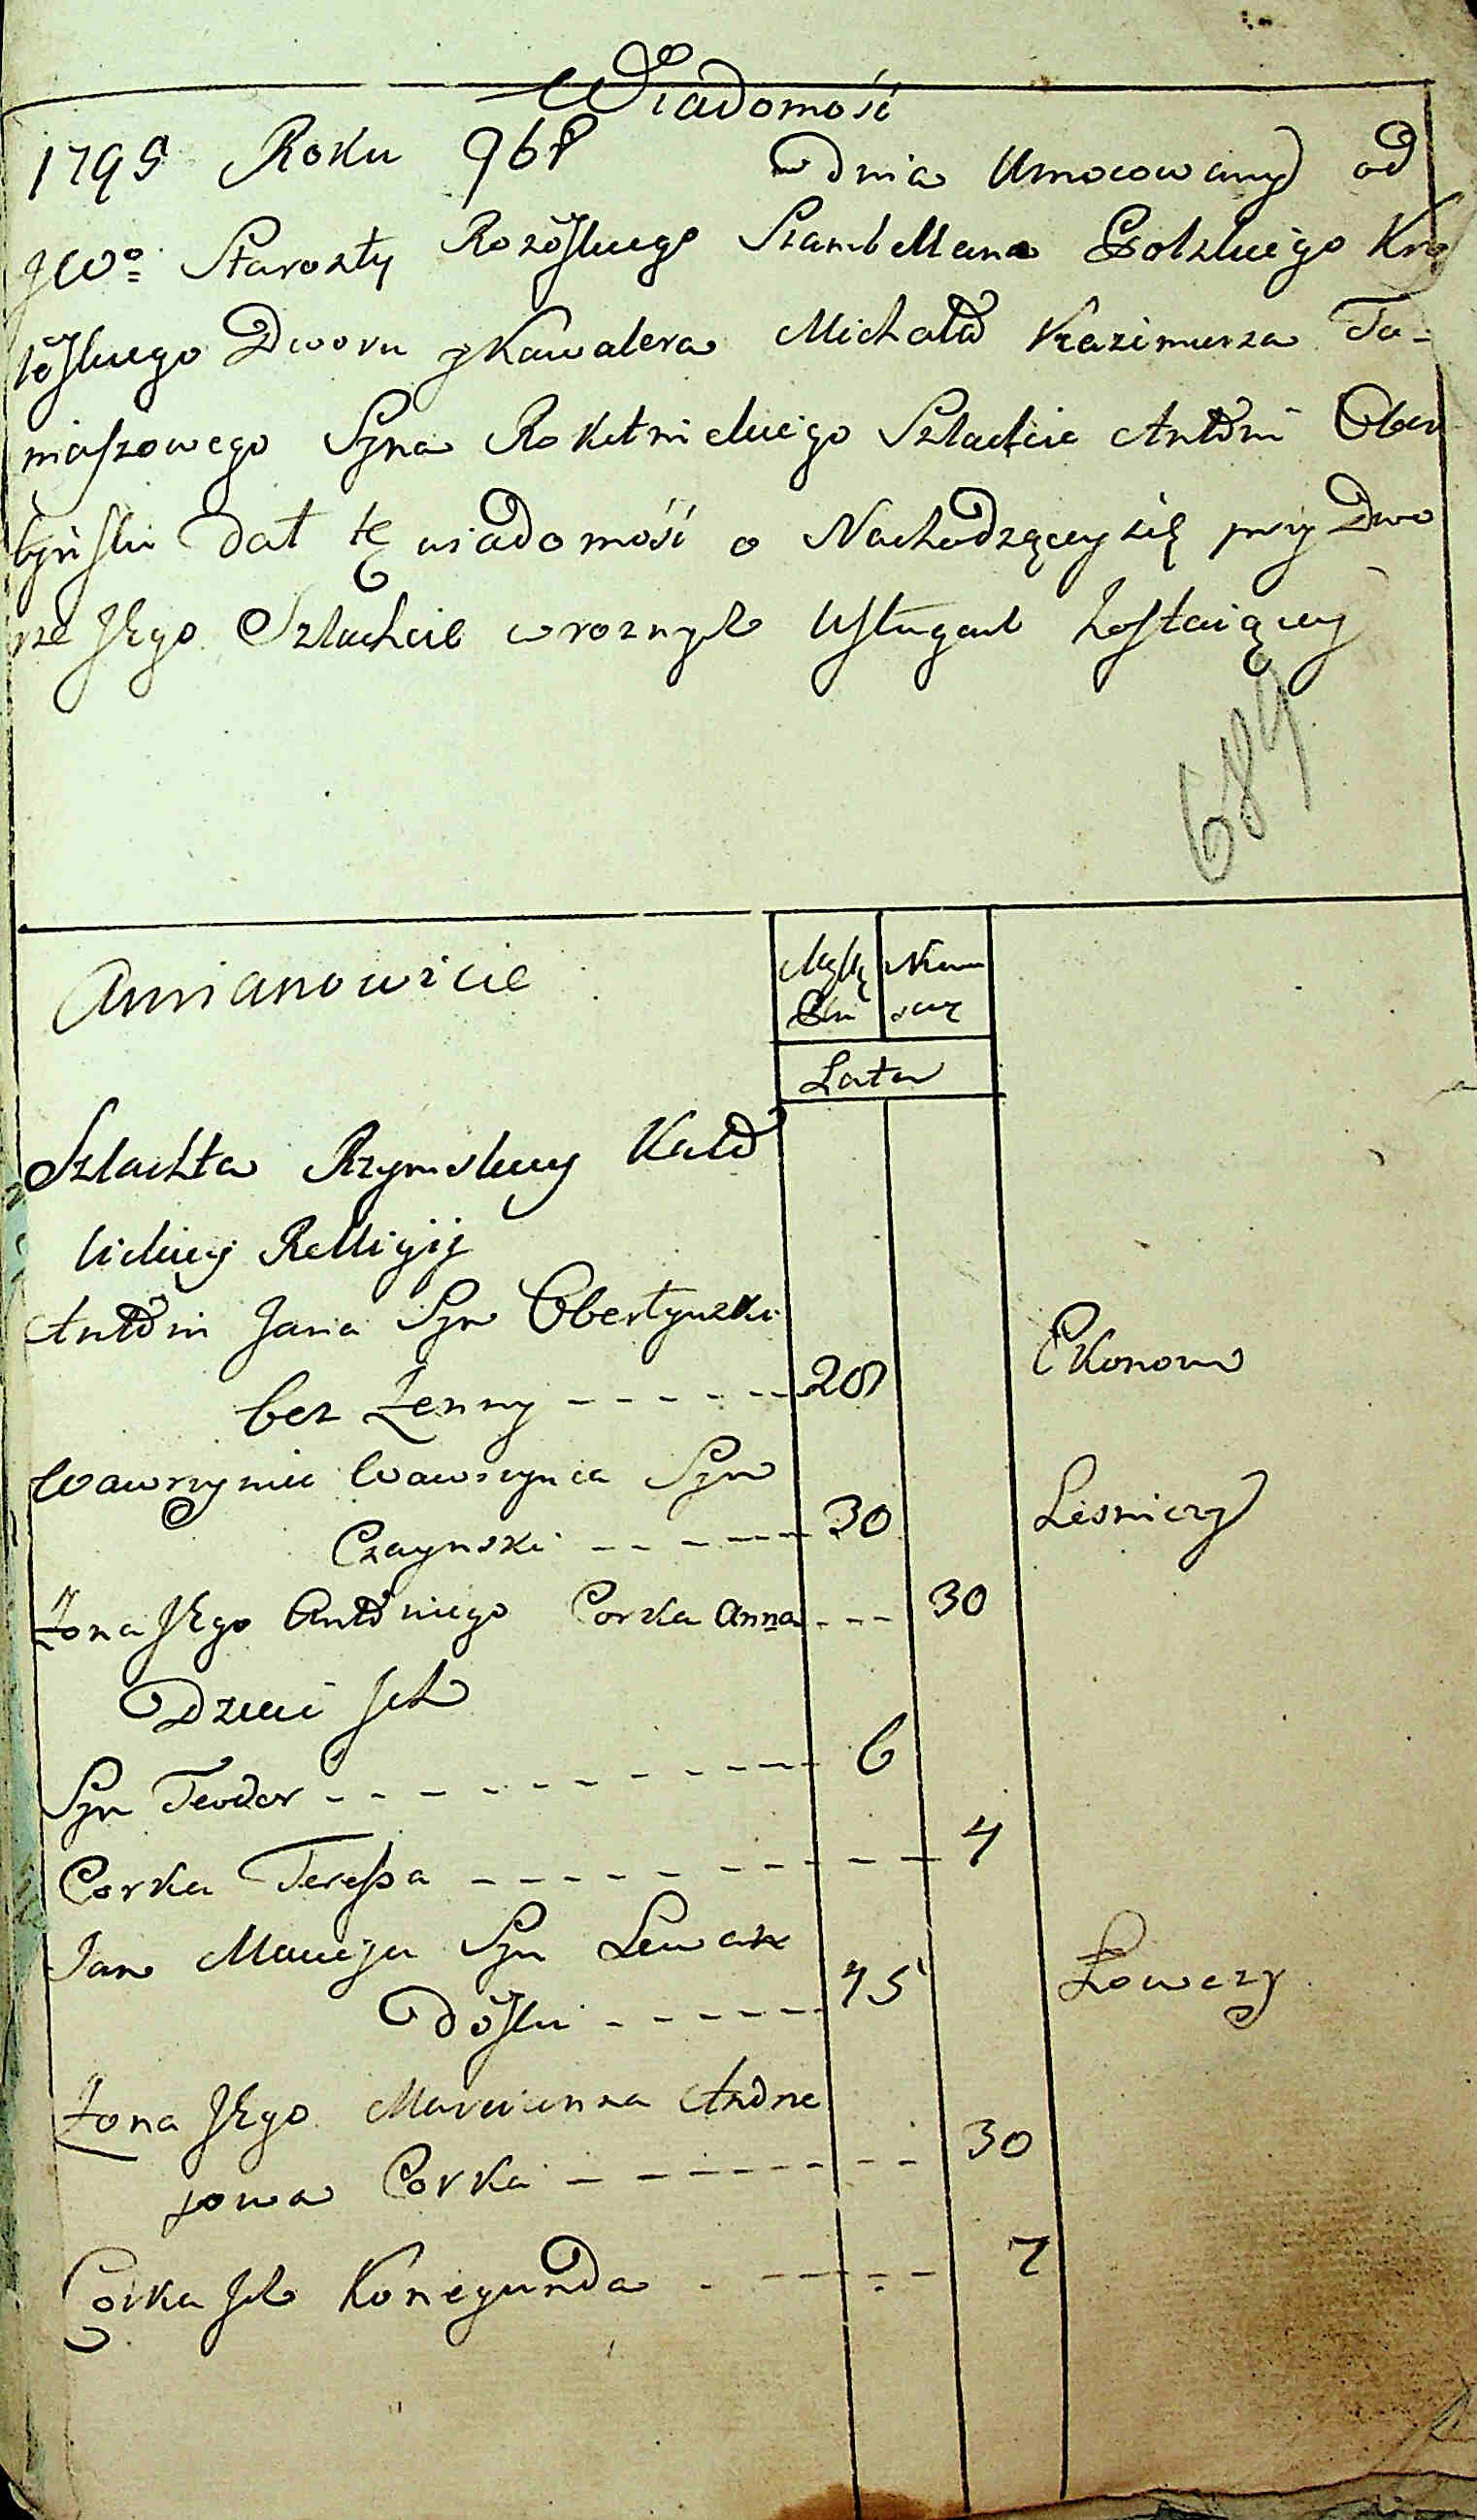 Wiadomość
1795 Roku 9bł dnia Umocowany od
JWo Starosty Szambellana Polskiego Kro
lewskiego Dworu y Kawalera Michała Kazimierza To-
maszowego Syna Rokitnickiego Szlachcic Antoni Ober
tyński Dał tę wiadomość o Nachodzącey się przy Dwo
rze JEgo Szlachcie w roznych Usługach Zostaiącey
689
Amianowicie
Męsk Niew
Płci
Lata
Szlachta Rzymskiey Kato
lickiey Relligiię
Antoni Jana Syn Obertynski
bez Zenny - - - - - - 28 Ekonom
Wawrzyniec Wawrzynca Syn
Czaynski - - - - - 30 Lesniczy
Zona JEgo Antoniego Corka Anna - - - 30
Dzieci Ich
Syn Teodor - - - - - - - - - - 6
Corka Teressa - - - - - - - - - - 4
Jan Macieja Syn Lewan
doski - - - - - - 45 Łowczy
Zona JEgo Maryianna Andrze
jowa Corka - - - - - - - - - 30
Corka Ich Konegunda - - - - - - 7